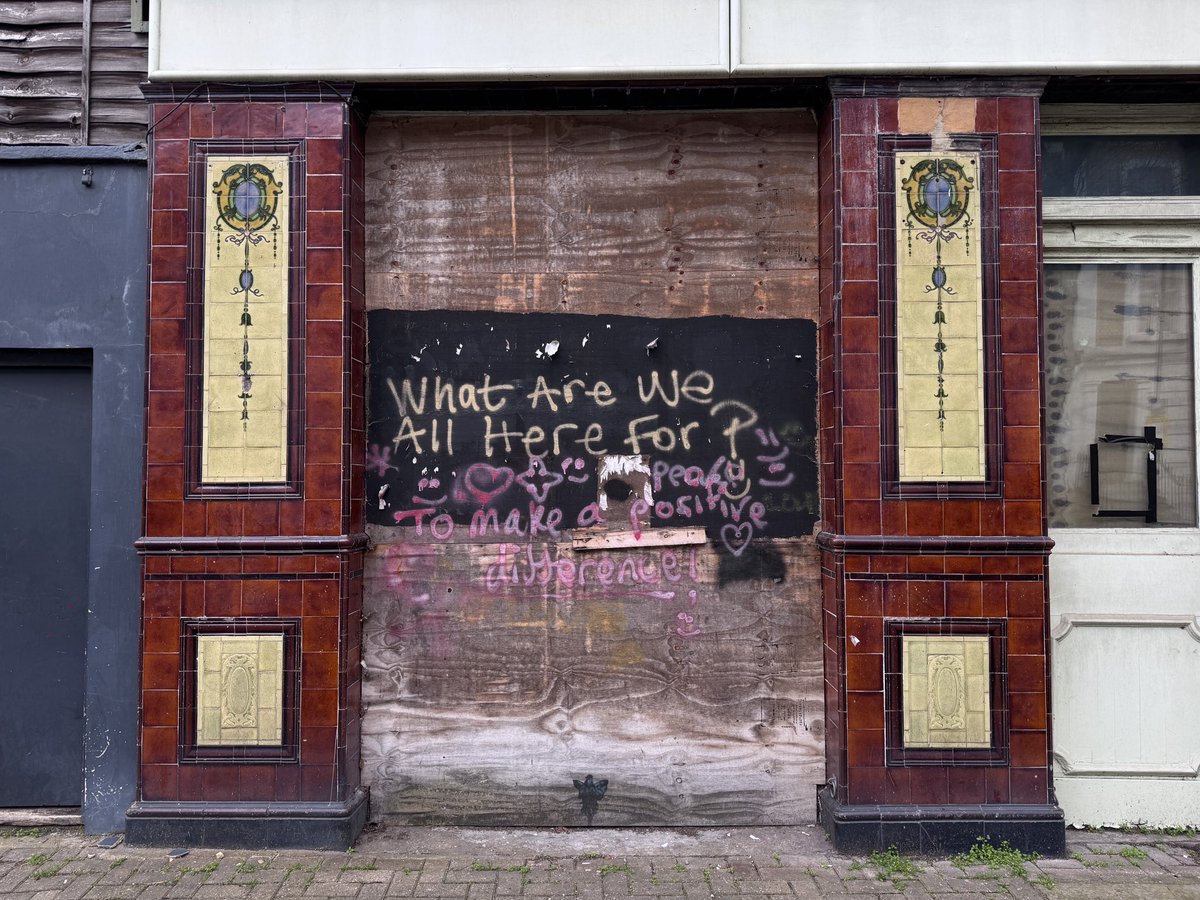 What Are We
All Here For?
peace
To make a positive
difference!